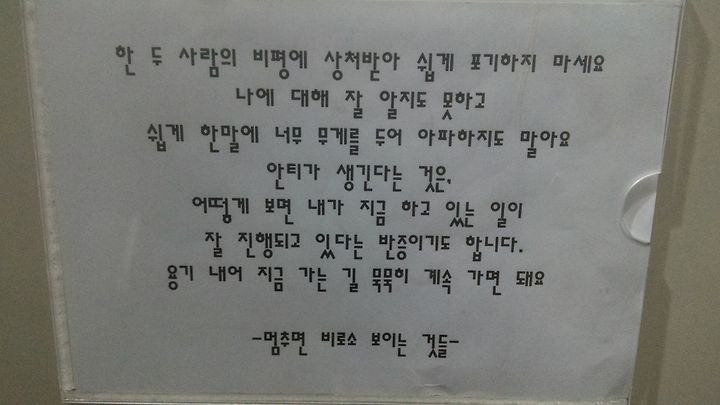 한 두 사람의 비평에 상처받아 쉽게 포기하지 마세요
나에 대해 잘 알지도 못하고
쉽게 한말에 너무 무게를 두어 아파하지도 말아요
안티가 생긴다는 것은,
어떻게 보면 내가 지금 하고 있는 일이
잘 진행되고 있다는 반증이기도 합니다.
용기 내어 지금 가는 길 묵묵히 계속 가면 돼요
-멈추면 비로소 보이는 것들-